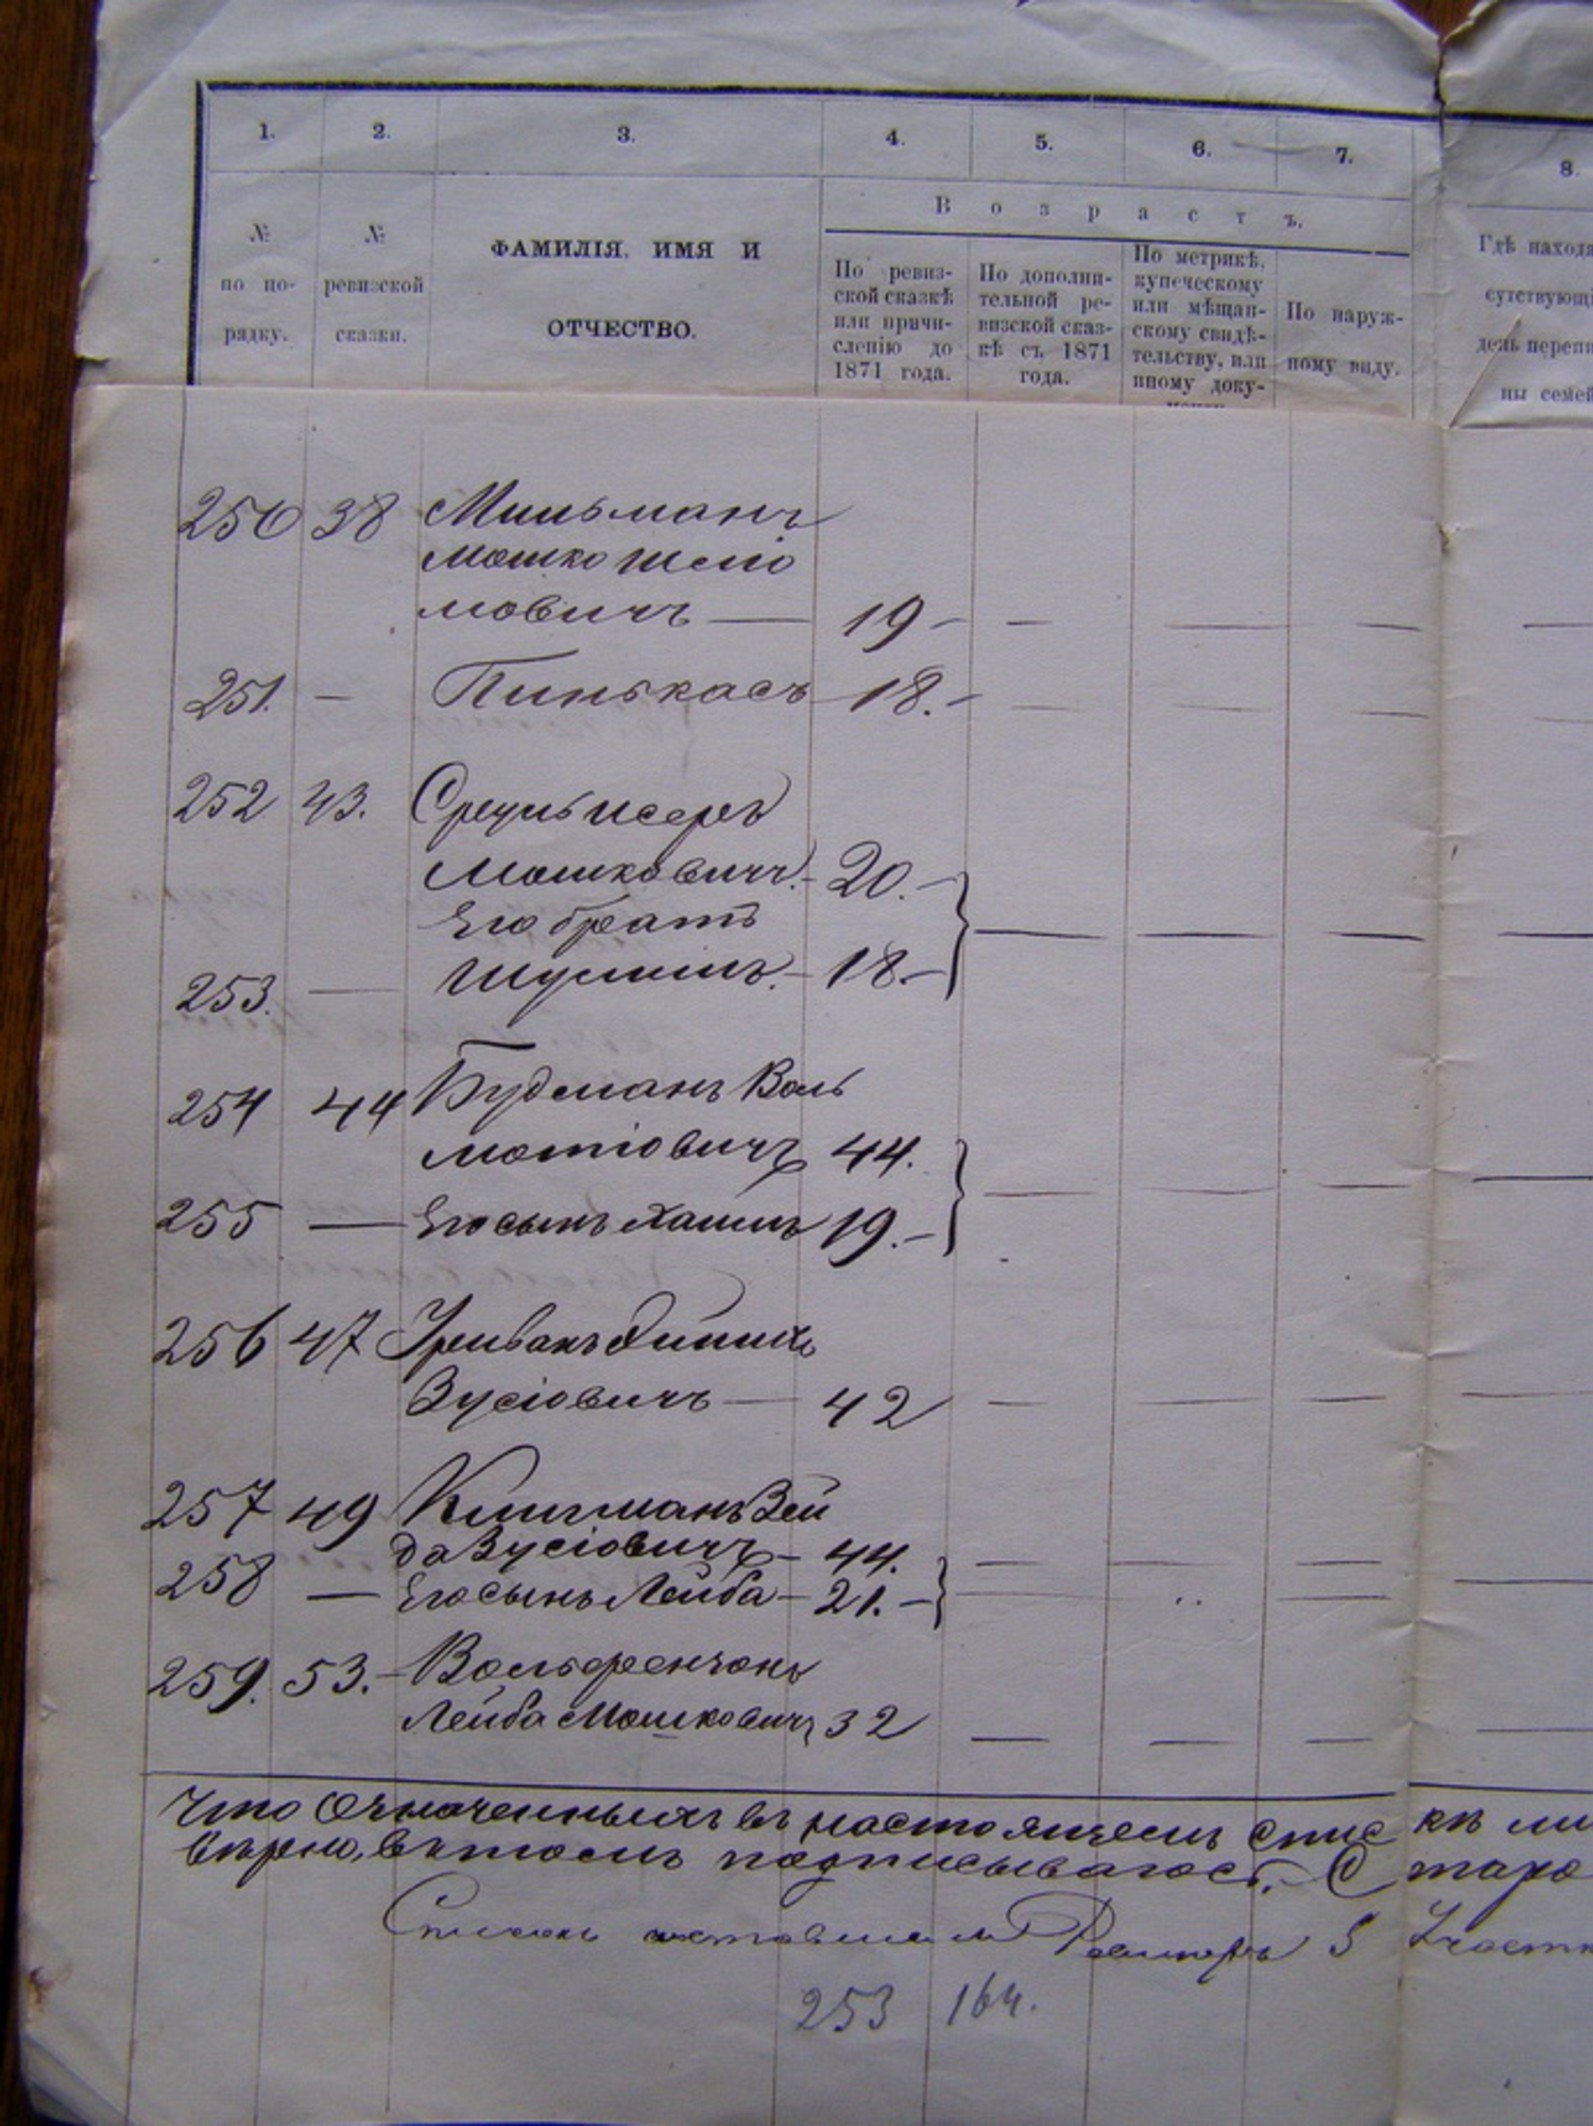 1. 2. 3. 4. 5. 6. 7. 8.
В о з р а с т ъ.
№
по по-
рядку.
№
ревизской
сказки.
ФАМИЛІЯ, ИМЯ И
ОТЧЕСТВО.
По ревиз-
ской сказкѣ
или причи-
сленію до
1871 года.
По дополни-
тельной ре-
визской сказ-
кѣ съ 1871
года.
По метрикѣ,
купеческому
или мѣщан-
скому свидѣ-
тельству, или
иному доку-
По наруж-
ному виду.
Гдѣ находя
сутствующі
день перепи
ны семей
250 38 Мильманъ
Мошко Шлю
мовичъ — 19 —
251. — Пинькасъ 18. —
252 43. Исеръ
Мошковичъ. 20. —
Его братъ
253. — Шулимъ. — 18. —
254 44 Будманъ Воль
Мотіовичъ 44.
255 — Его сынъ Хаимъ 19. —
256 47
Зусіовичъ — 42
257 49 Зей
да Зусіовичъ — 44.
258 — Его сынъ Лейба — 21. —
259. 53. —
Лейба Мошковичъ 32
Что означенныхъ въ настоящемъ спис кѣ ли
вѣрно, въ томъ подписываюсь. Старо
Списокъ составилъ 5 Участк
253 164.